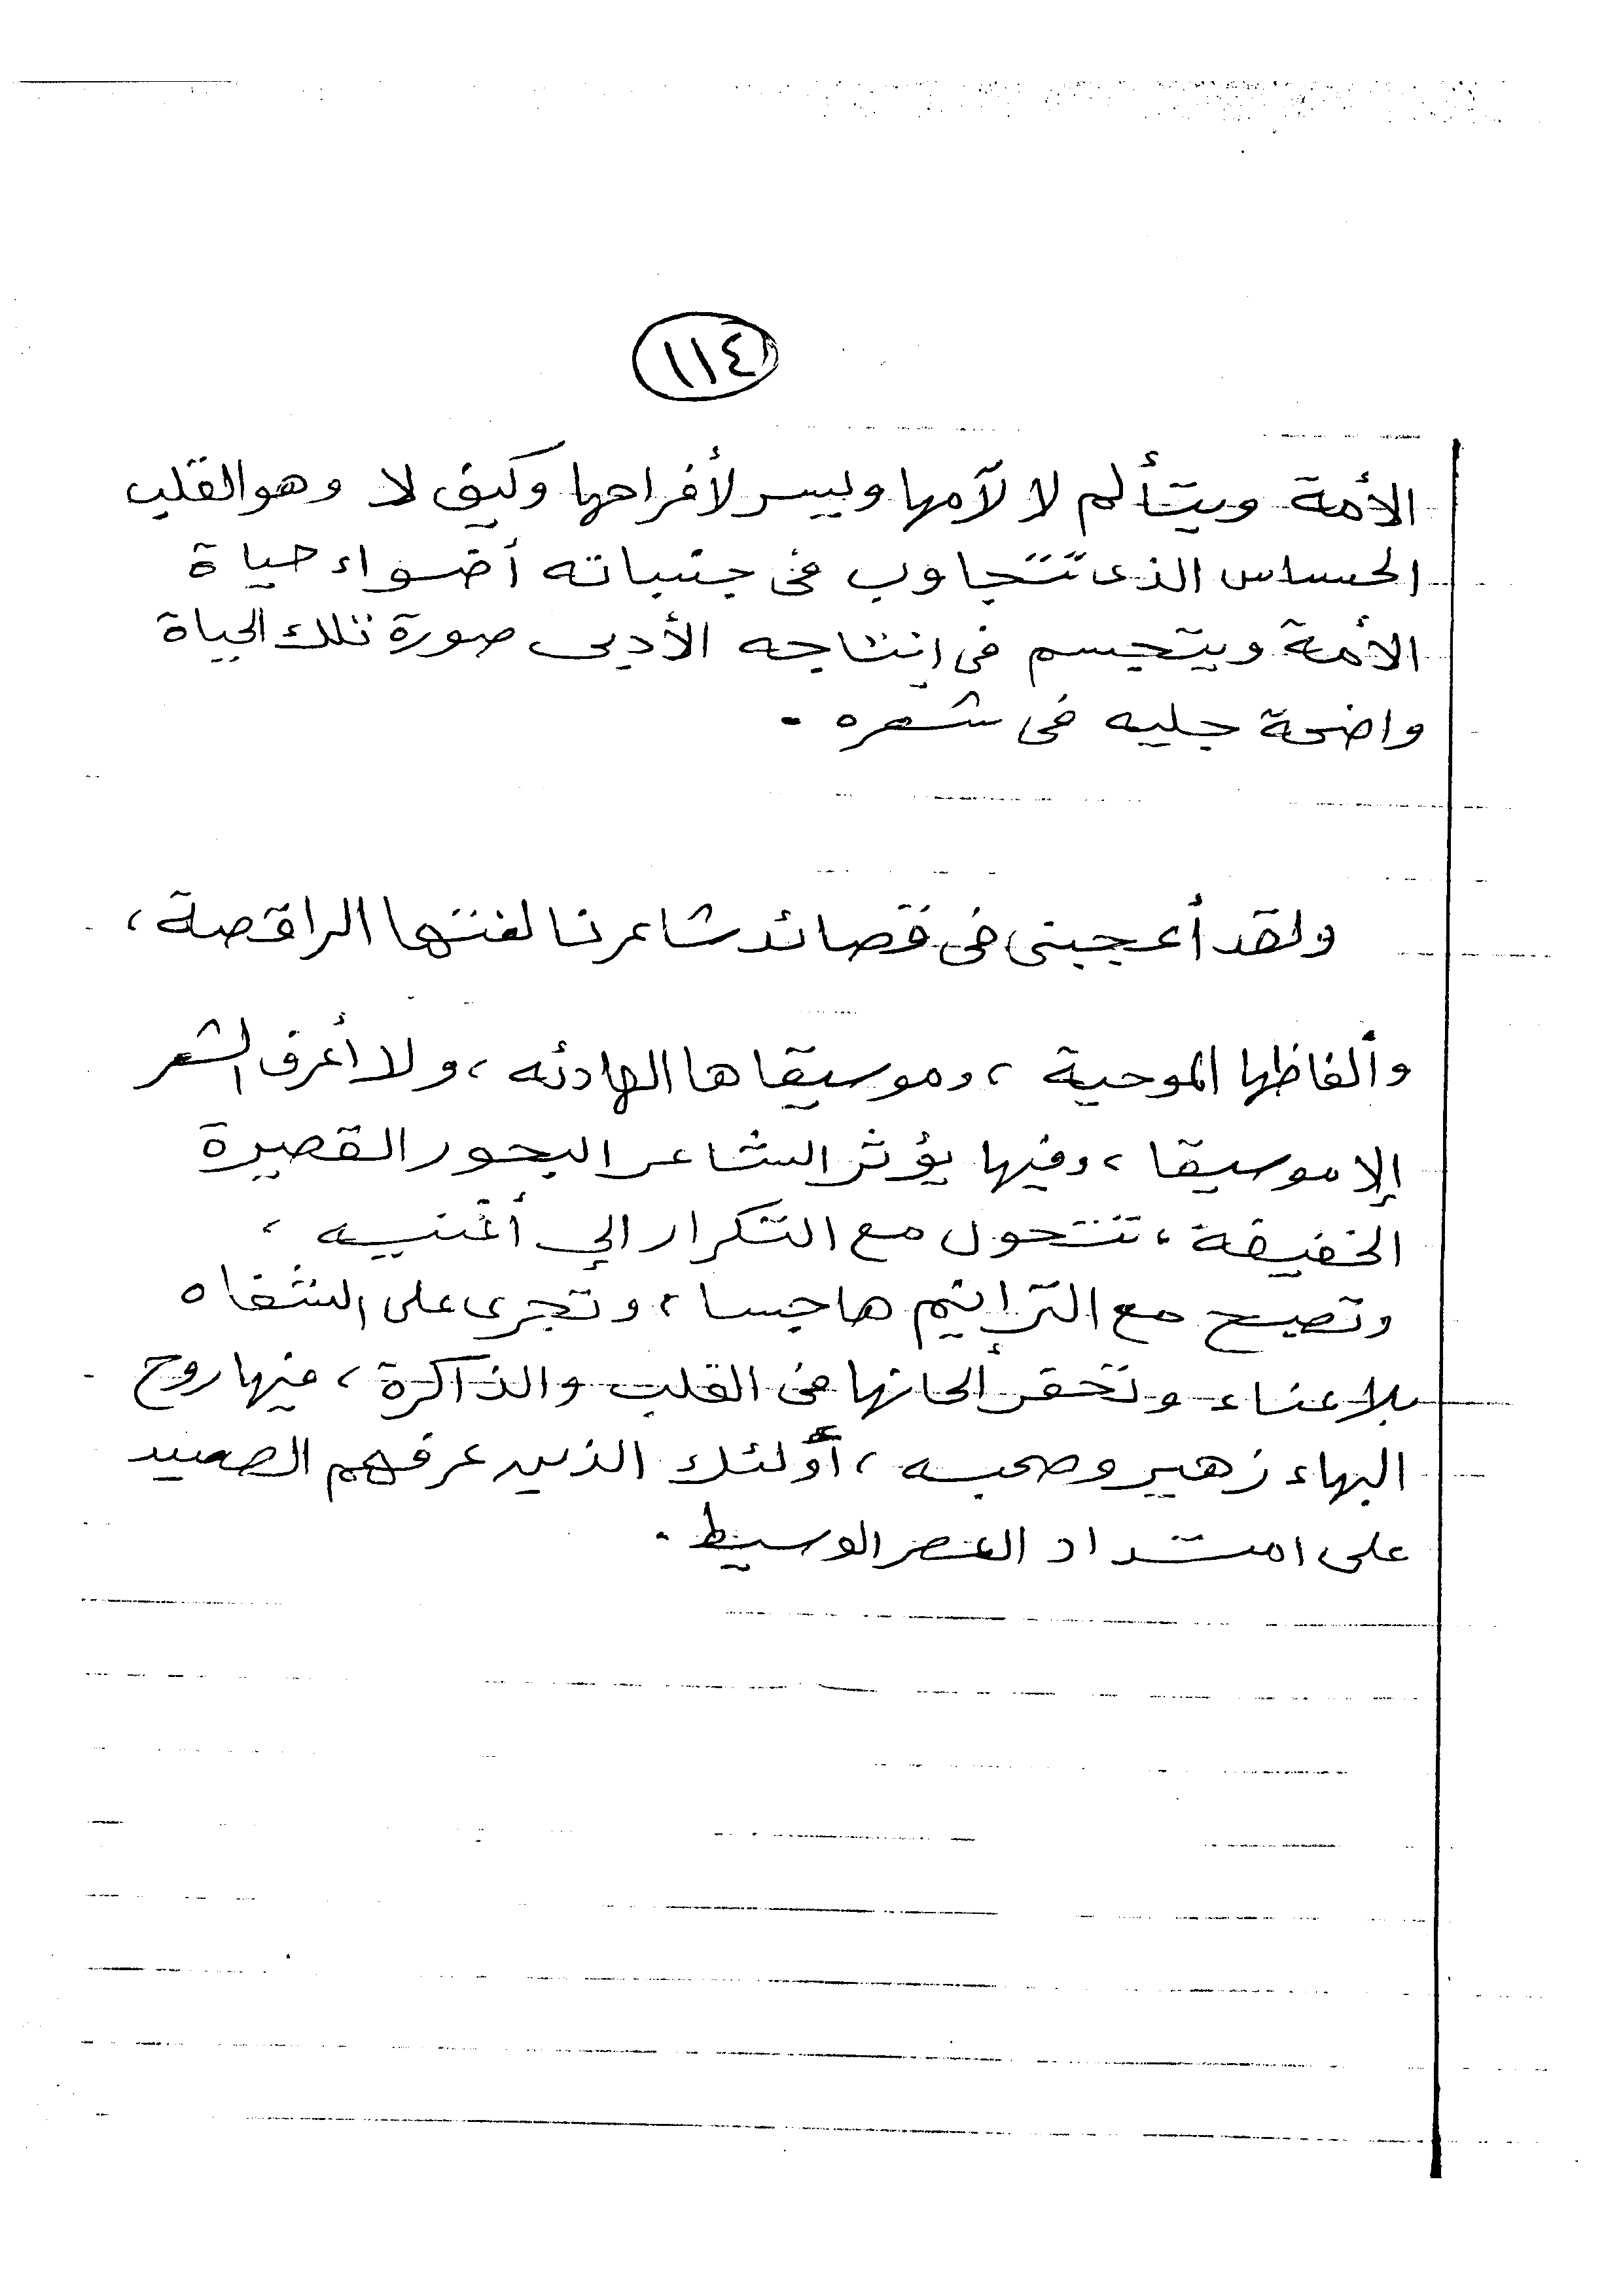 ١١٤
الأمة ويتألم لا لآمها وييسر لأفراحها وكيف لا وهو القلب
الحساس الذى تتجاوب فى جنباته أضواء حياة
الأمة ويتجسم فى إنتاجه الأدبى صورة تلك الحياة
واضحة جليه فى شعره .
ولقد أعجبنى فى قصائد شاعرنا لغتها الراقصة ،
وألفاظها الموحية ، وموسيقاها الهادئه ، ولا أعرف الشعر
إلا موسيقا ، وفيها يؤثر الشاعر البحور القصيرة
الخفيفة ، تتحول مع التكرار إلي أغنيه ،
وتصبح مع الترانيم هاجسا ، وتجرى على الشفاه
بلا عناء وتحفر ألحانها فى القلب والذاكرة ، فيها روح
البهاء زهير وصحبه ، أولئك الذين عرفهم الصعيد
على امتداد العصر الوسيط .